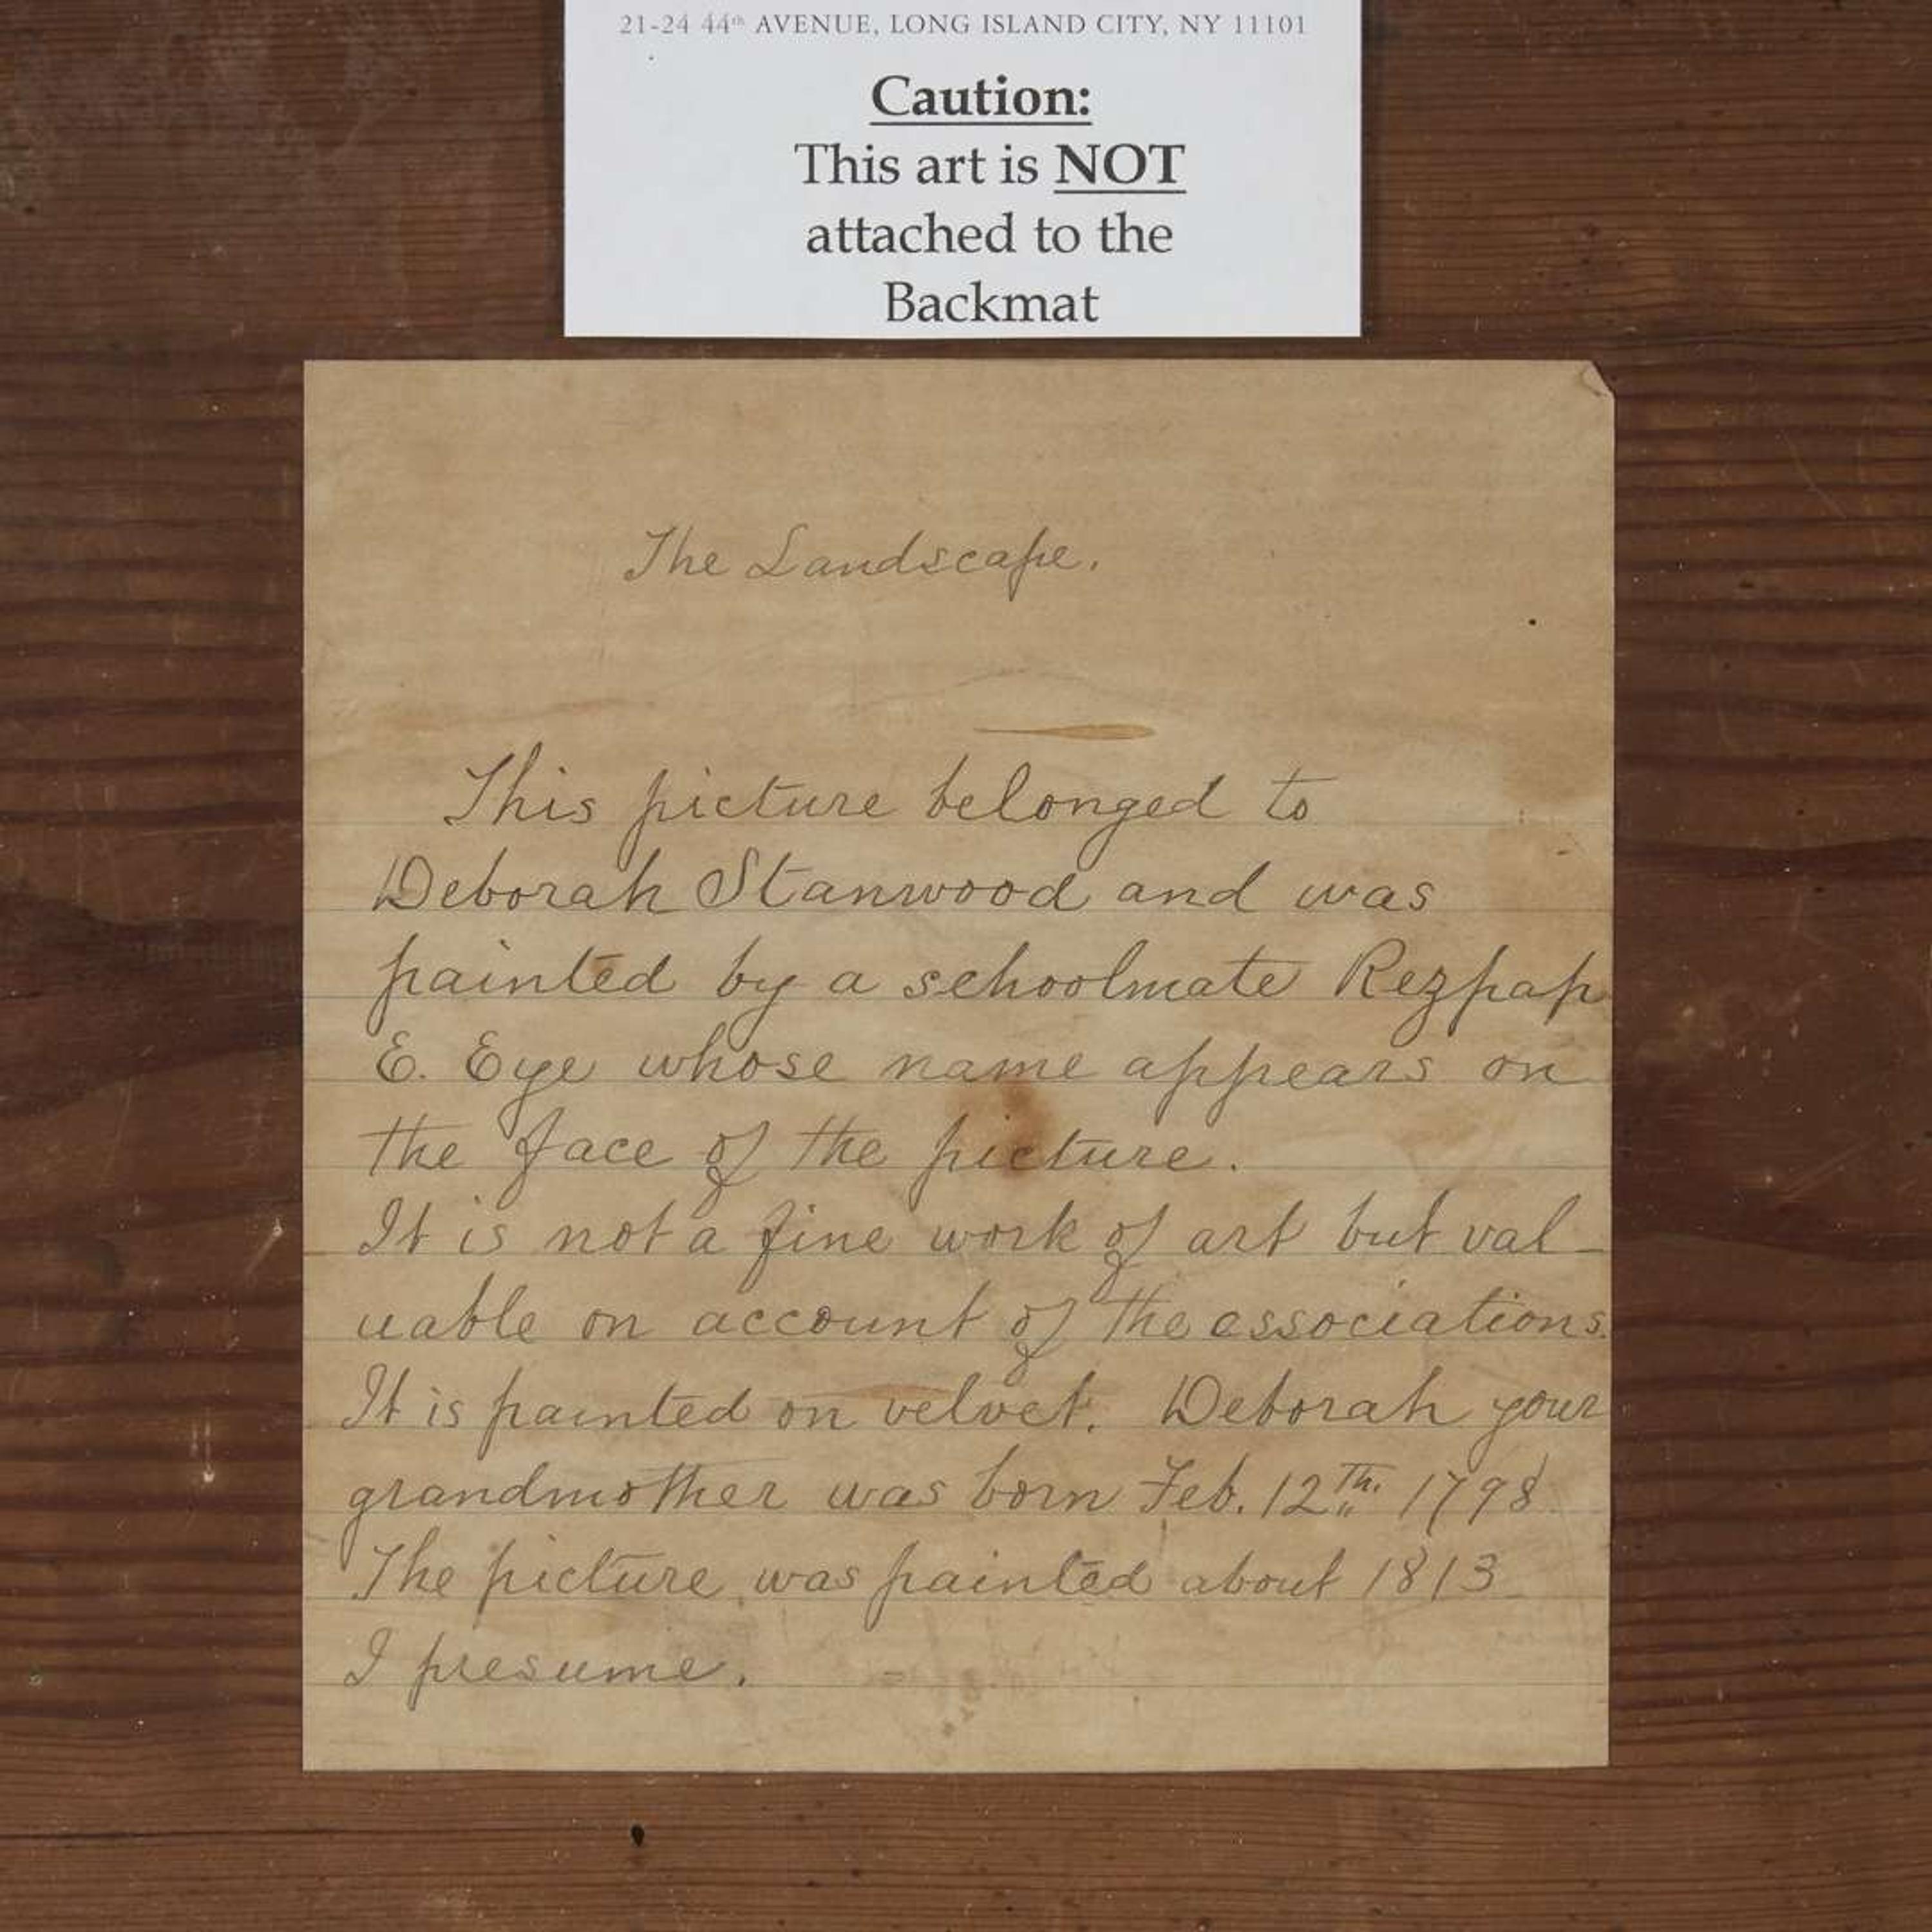 21-24 44th AVENUE, LONG ISLAND CITY, NY 11101
Caution:
This art is NOT
attached to the
Backmat
The Landscape.
This picture belonged to
Deborah Stanwood and was
painted by a schoolmate Rezpap
E. Eye whose name appears on
the face of the picture.
It is not a fine work of art but val-
uable on account of the associations.
It is painted on velvet. Deborah your
grandmother was born Feb. 12th. 1798
The picture was painted about 1813
I presume.